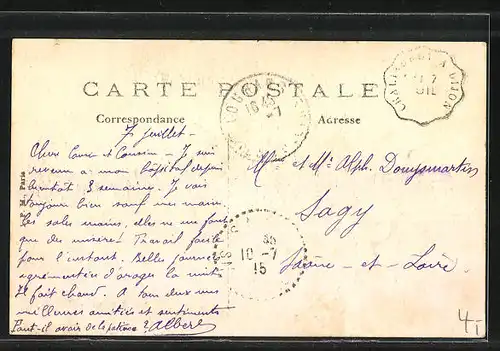 CARTE POSTALE
Correspondance
Adresse
7 Juillet -
Cher Cousin et Cousine - Je suis
revenu a mon hôpital depuis
bientot 3 semaines. Je vais
toujours bien sauf mes mains
les sales mains, elles ne me font
que des miseres - Travail facile
pour l'instant. Belles journées
agrémentées d'orages la nuit
Il fait chaud. A tous deux mes
meilleures amitiés et sentiments
Faut-il avoir de la patience? Albert
Mme et Mr Alph. Douysmartin
Sagy
Saône-et-Loire
10-7
15
Paris